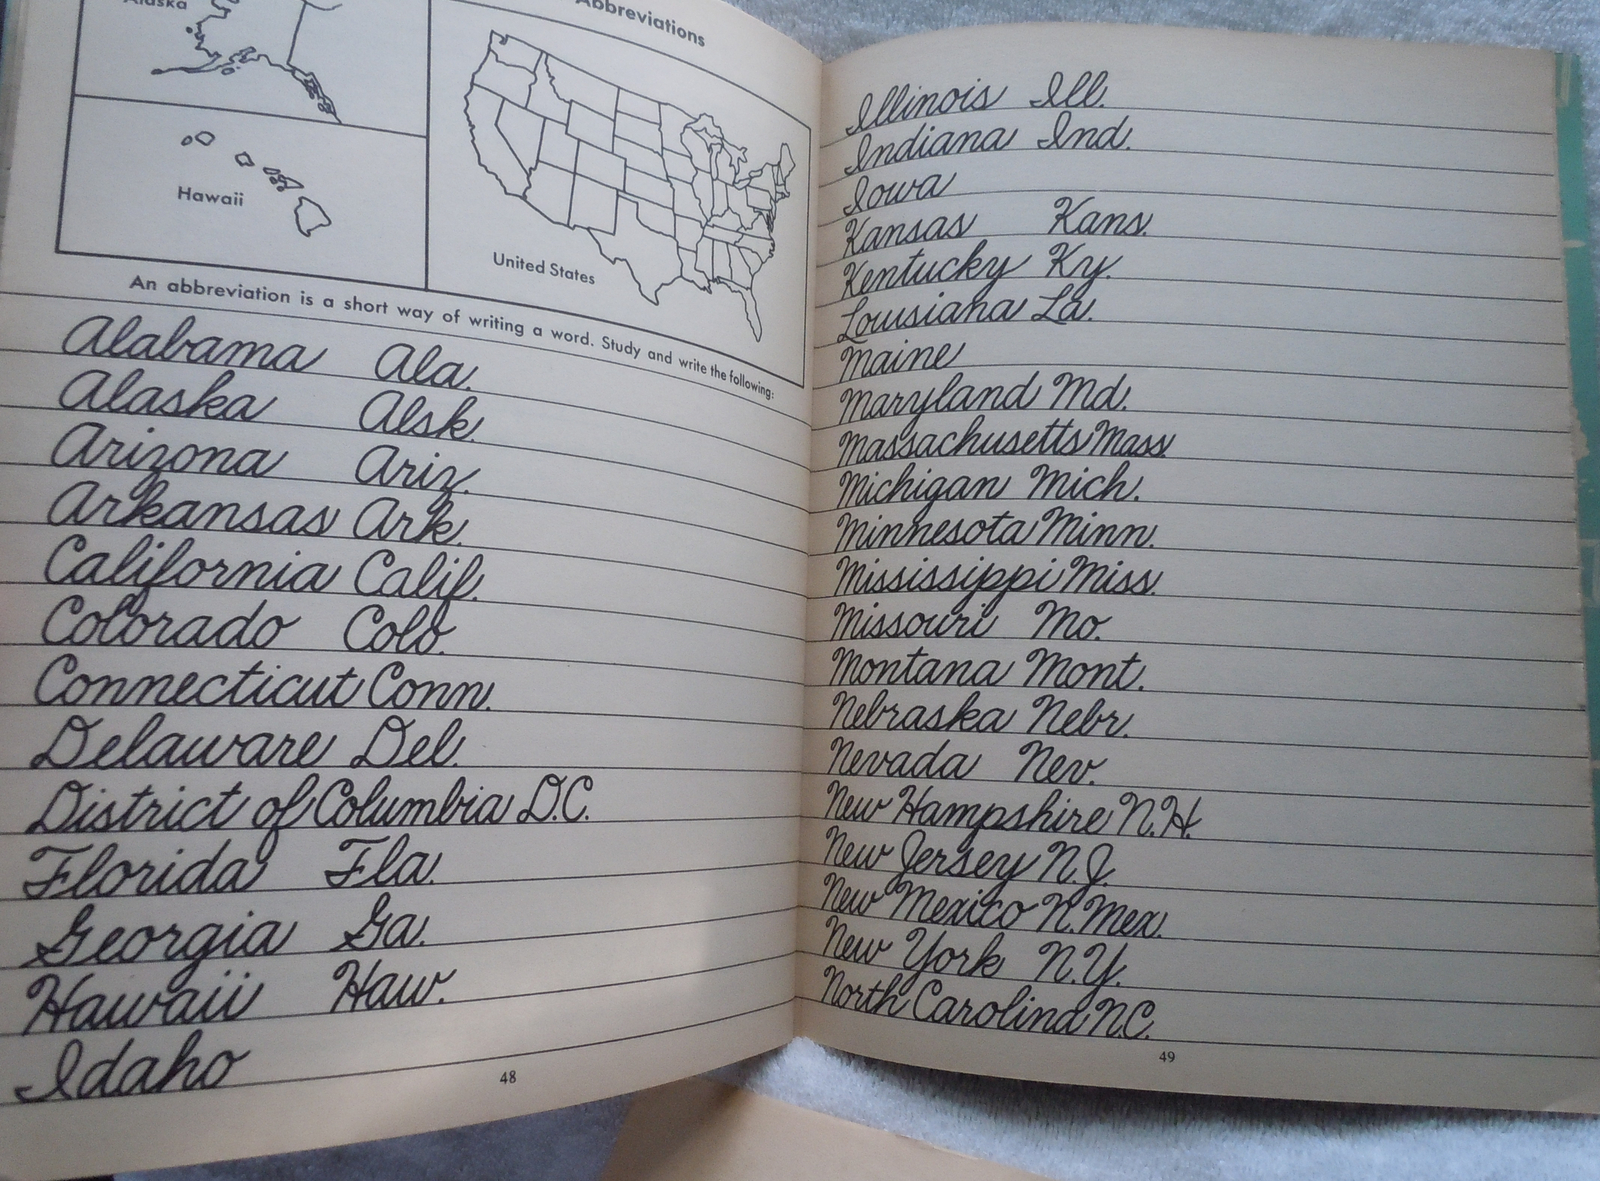 Alaska
Abbreviations
Hawaii
United States
An abbreviation is a short way of writing a word. Study and write the following:
Alabama Ala.
Alaska Alsk.
Arizona Ariz.
Arkansas Ark.
California Calif.
Colorado Colo.
Connecticut Conn.
Delaware Del.
District of Columbia D.C.
Florida Fla.
Georgia Ga.
Hawaii Haw.
Idaho
48
Illinois Ill.
Indiana Ind.
Iowa
Kansas Kans.
Kentucky Ky.
Louisiana La.
Maine
Maryland Md.
Massachusetts Mass
Michigan Mich.
Minnesota Minn.
Mississippi Miss.
Missouri Mo.
Montana Mont.
Nebraska Nebr.
Nevada Nev.
New Hampshire N.H.
New Jersey N.J.
New Mexico N.Mex.
New York N.Y.
North Carolina N.C.
49